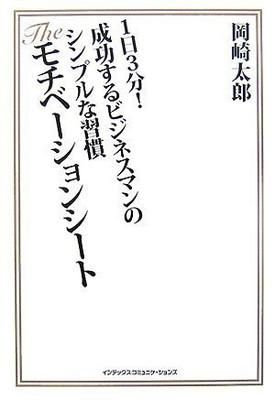 岡崎太郎
1日3分！
成功するビジネスマンの
シンプルな習慣
The モチベーションシート
インデックスコミュニケーションズ